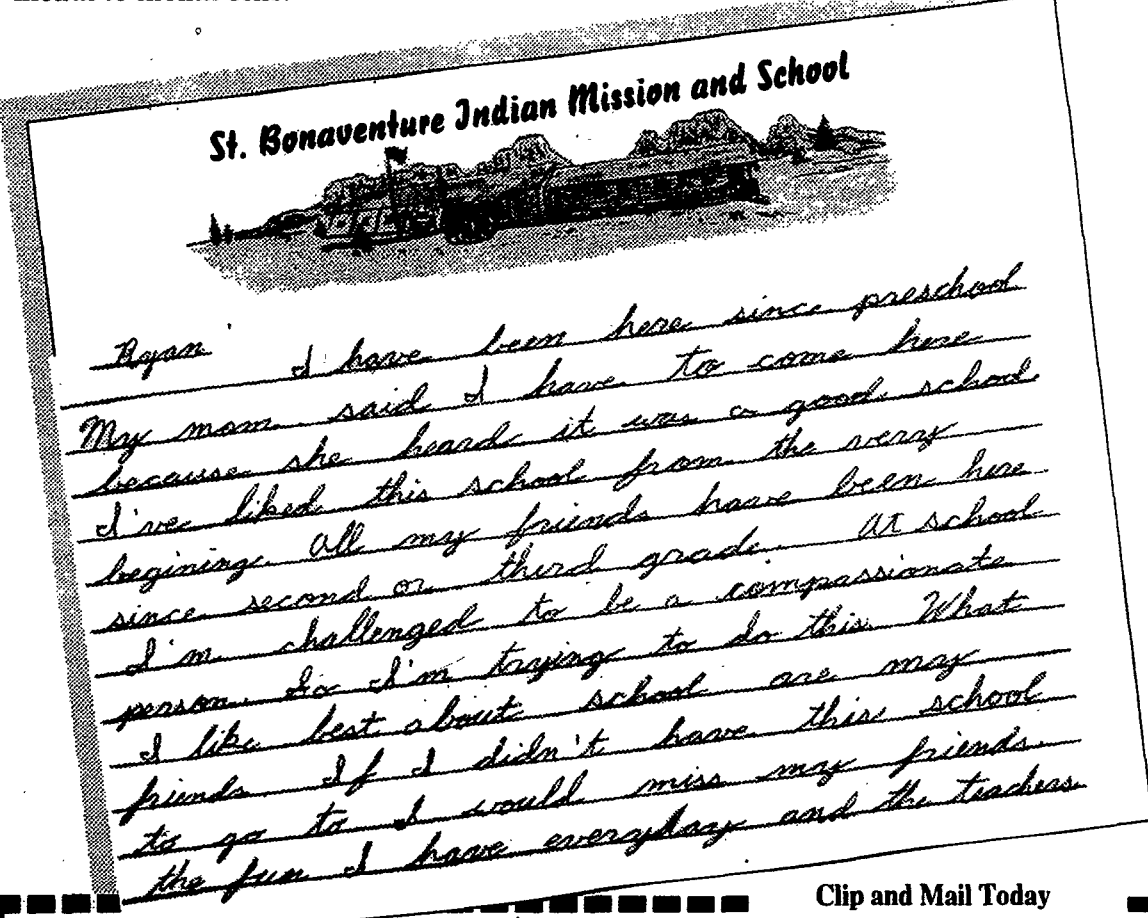 St. Bonaventure Indian Mission and School
Ryan I have been here since preschool
My mom said I have to come here
because she heard it was a good school
I've liked this school from the verry
begining. All my friends have been here
since second or third grade. At school
I'm challenged to be a compassionate
person. So I'm trying to do this. What
I like best about school are my
friends. If I didn't have this school
to go to I would miss my friends.
the fun I have everyday and the teachers.
Clip and Mail Today